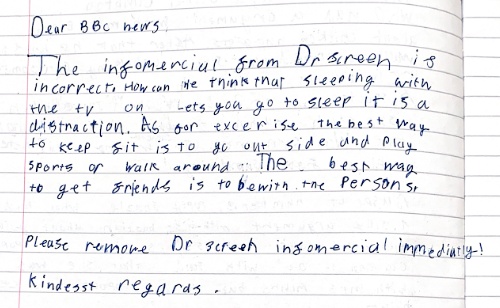 Dear BBC news.
The infomercial from Dr screen is
incorrect. How can he think that sleeping with
the tv on lets you go to sleep It is a
distraction. As for excerise the best way
to keep fit is to go out side and play
sports or walk around. The best way
to get friends is to be with the Persons.
Please remove Dr screen infomercial immediatly!
kindesst regards.